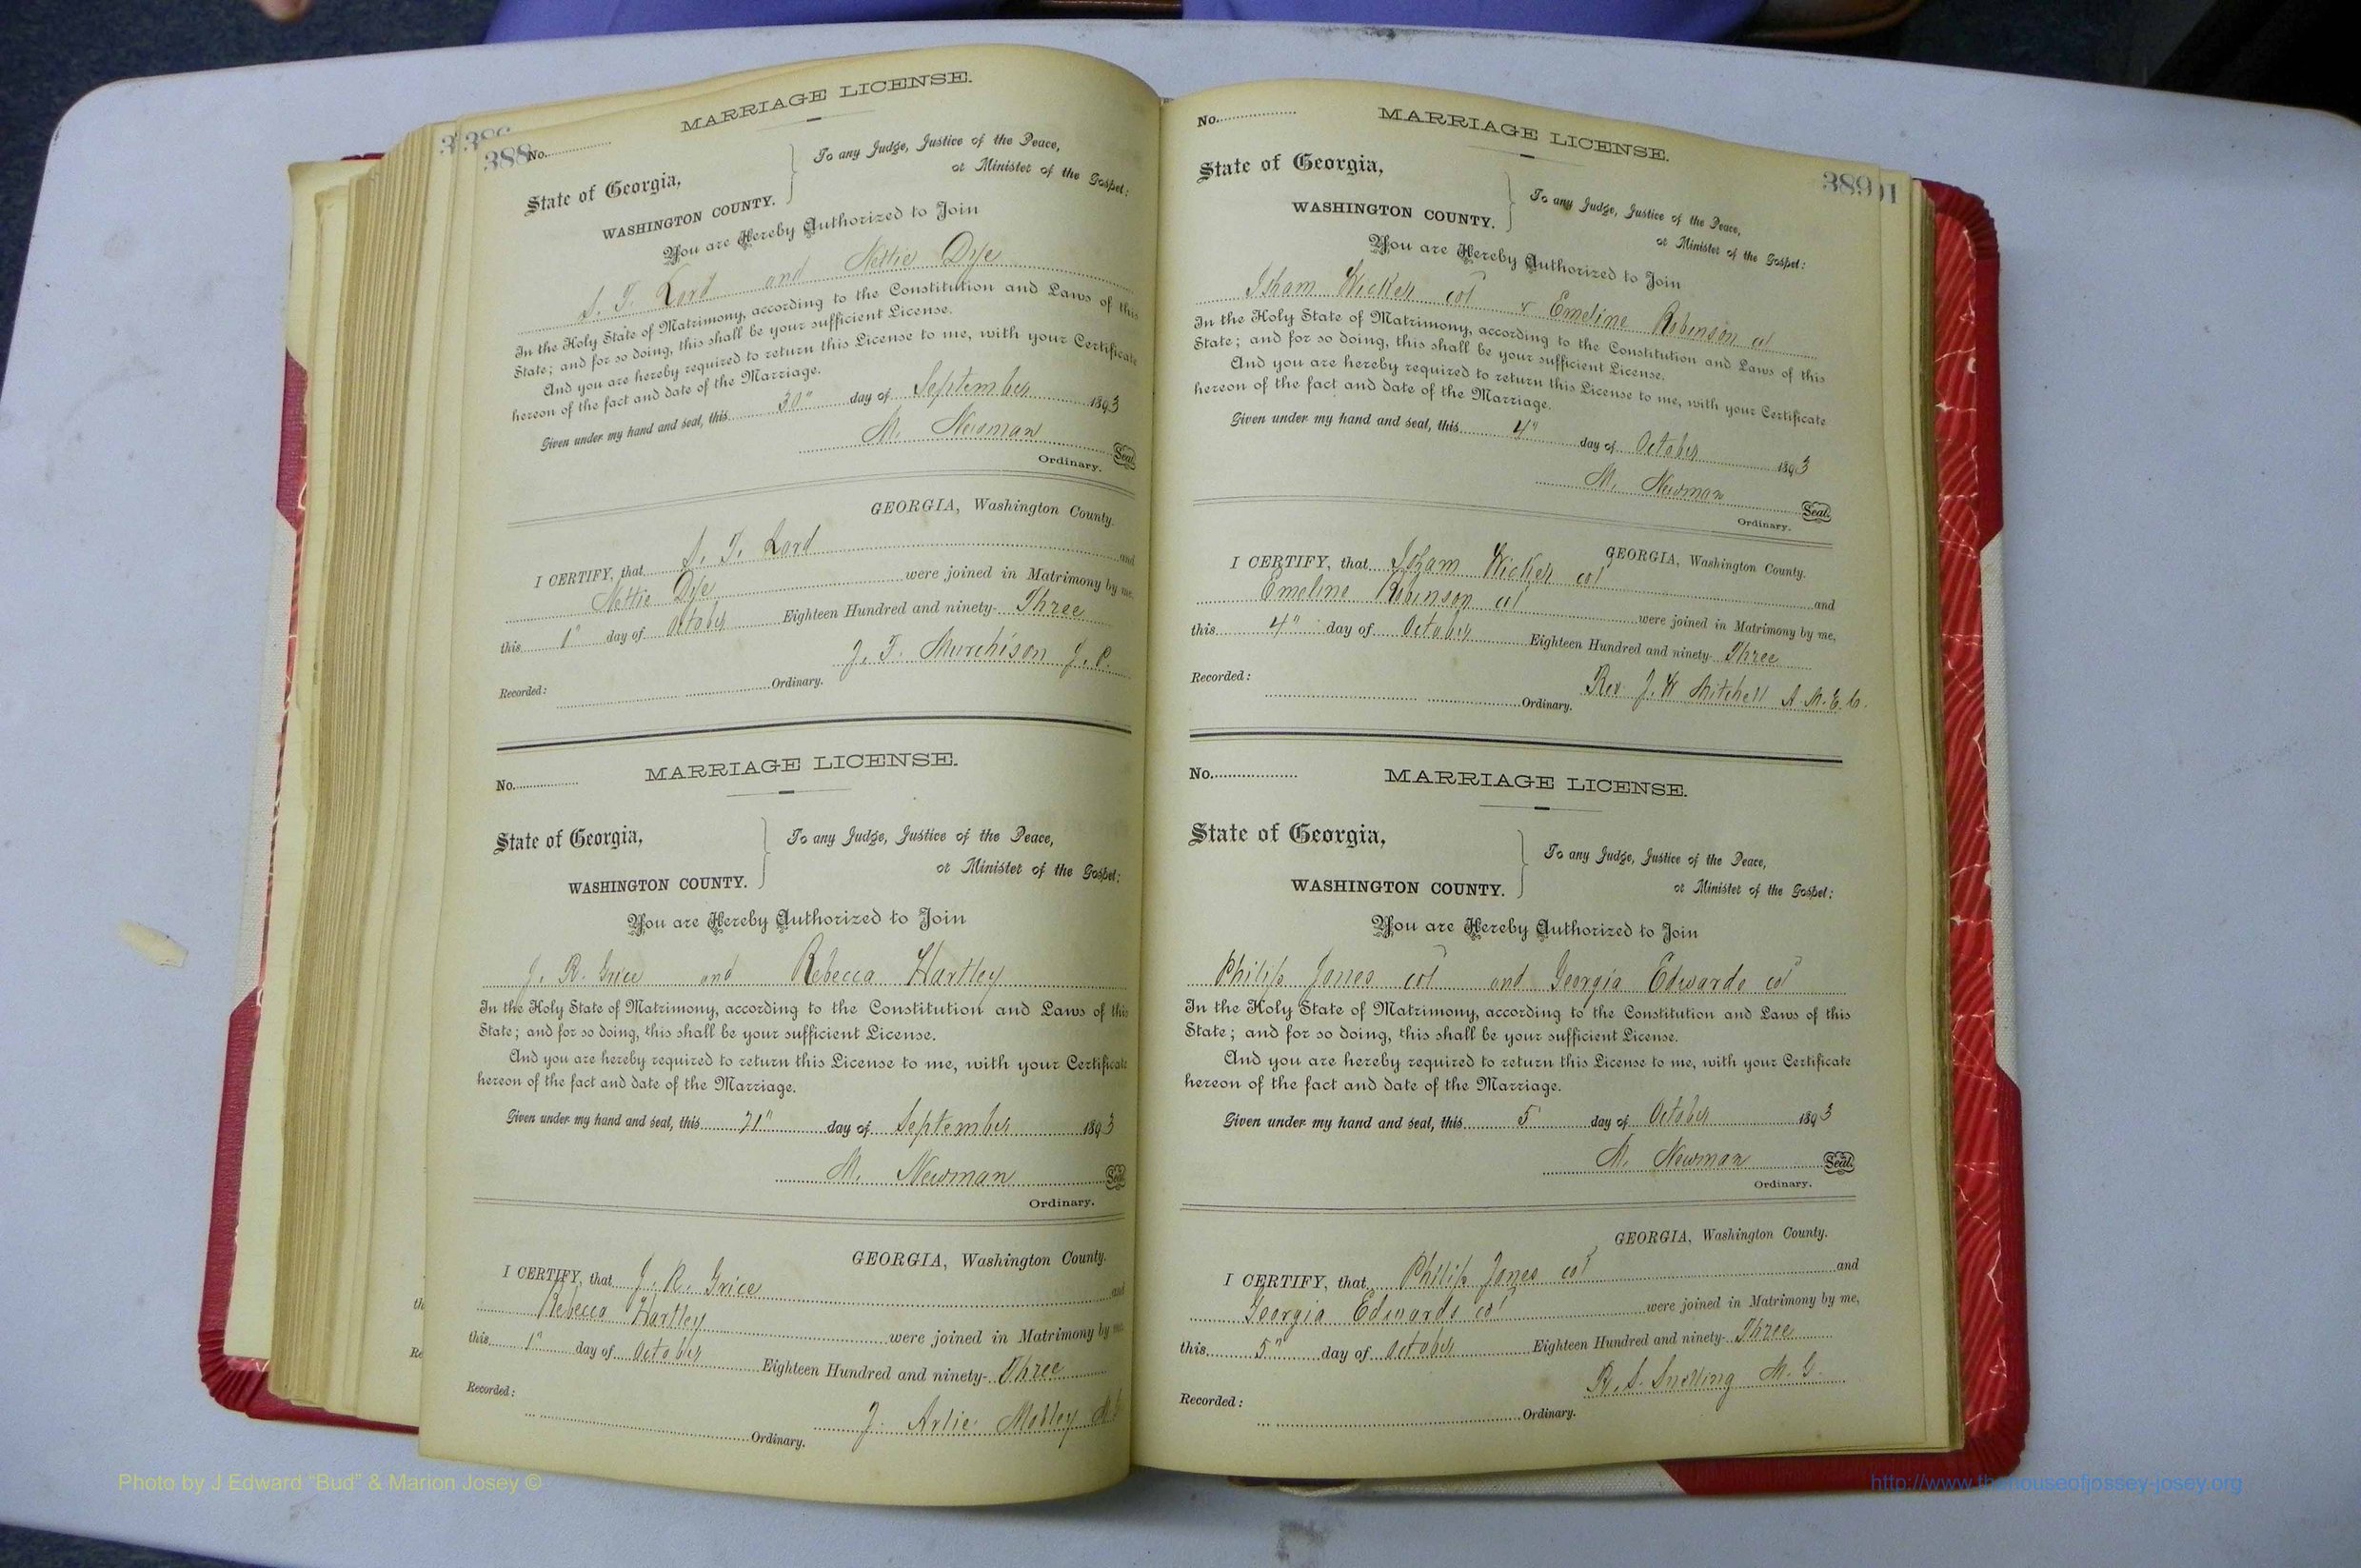 386
388
No.
MARRIAGE LICENSE.
State of Georgia,
WASHINGTON COUNTY.
To any Judge, Justice of the Peace,
or Minister of the Gospel:
You are Hereby Authorized to Join
S. T. Lord and Nettie Dye
In the Holy State of Matrimony, according to the Constitution and Laws of this
State; and for so doing, this shall be your sufficient License.
And you are hereby required to return this License to me, with your Certificate
hereon of the fact and date of the Marriage.
Given under my hand and seal, this 30" day of September 1893
M. Newman Seal
Ordinary.
GEORGIA, Washington County.
I CERTIFY, that S. T. Lord and
Nettie Dye were joined in Matrimony by me,
this 1" day of October Eighteen Hundred and ninety- Three
J. T. Murchison J. P.
Recorded:
Ordinary.
No.
MARRIAGE LICENSE.
State of Georgia,
WASHINGTON COUNTY.
To any Judge, Justice of the Peace,
or Minister of the Gospel:
You are Hereby Authorized to Join
J. R. Grice and Rebecca Hartley
In the Holy State of Matrimony, according to the Constitution and Laws of this
State; and for so doing, this shall be your sufficient License.
And you are hereby required to return this License to me, with your Certificate
hereon of the fact and date of the Marriage.
Given under my hand and seal, this 21" day of September 1893
M. Newman Seal
Ordinary.
GEORGIA, Washington County.
I CERTIFY, that J. R. Grice and
Rebecca Hartley were joined in Matrimony by me
this 1" day of October Eighteen Hundred and ninety- Three
J. Arlie Mobley
Recorded:
Ordinary.
No.
MARRIAGE LICENSE.
389
State of Georgia,
WASHINGTON COUNTY.
To any Judge, Justice of the Peace,
or Minister of the Gospel:
You are Hereby Authorized to Join
Isham Wicker col & Emeline Robinson col
In the Holy State of Matrimony, according to the Constitution and Laws of this
State; and for so doing, this shall be your sufficient License.
And you are hereby required to return this License to me, with your Certificate
hereon of the fact and date of the Marriage.
Given under my hand and seal, this 4" day of October 1893
M. Newman Seal.
Ordinary.
GEORGIA, Washington County.
I CERTIFY, that Isham Wicker col and
Emeline Robinson col were joined in Matrimony by me,
this 4" day of October Eighteen Hundred and ninety- Three
Rev. J. W Mitchell A. M. E. C.
Recorded:
Ordinary.
No.
MARRIAGE LICENSE.
State of Georgia,
WASHINGTON COUNTY.
To any Judge, Justice of the Peace,
or Minister of the Gospel:
You are Hereby Authorized to Join
Philip Jones col and Georgia Edwards col
In the Holy State of Matrimony, according to the Constitution and Laws of this
State; and for so doing, this shall be your sufficient License.
And you are hereby required to return this License to me, with your Certificate
hereon of the fact and date of the Marriage.
Given under my hand and seal, this 5" day of October 1893
M. Newman Seal.
Ordinary.
GEORGIA, Washington County.
I CERTIFY, that Philip Jones col and
Georgia Edwards col were joined in Matrimony by me,
this 5" day of October Eighteen Hundred and ninety- Three
R. S. Snelling M. G.
Recorded:
Ordinary.
Photo by J Edward "Bud" & Marion Josey ©
http://www.thehouseofjossey-josey.org